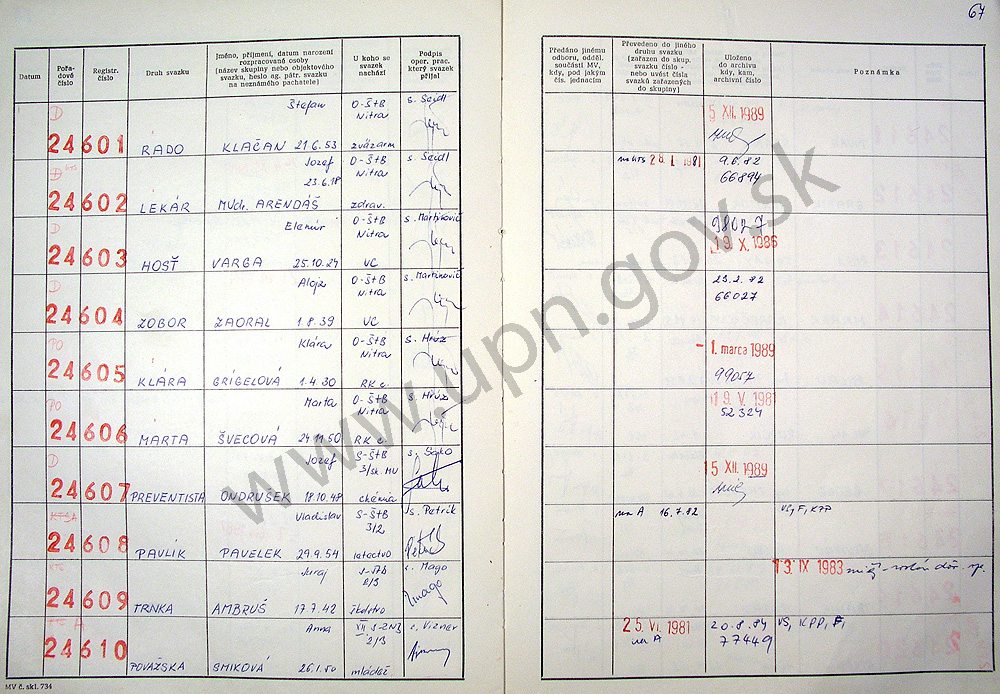 67
Datum
Pořadové číslo
Registr. číslo
Druh svazku
Jméno, příjmení, datum narození rozpracované osoby (název skupiny nebo objektového svazku, heslo ag. pátr. svazku na neznámého pachatele)
U koho se svazek nachází
Podpis oper. prac. který svazek přijal
Předáno jinému odboru, odděl. součásti MV, kdy, pod jakým čís. jednacím
Převedeno do jiného druhu svazku (zařazen do skup. svazku číslo - nebo uvést čísla svazků zařazených do skupiny)
Uloženo do archivu kdy, kam, archivní číslo
Poznámka
D Štefan O-ŠtB s. Seidl 5 XII. 1989
Nitra
24601 RADO KLAČAN 21 6. 53 zväzarm
D Jozef O-ŠtB s. Seidl 28. I. 1981 9.6.82
23.6.18 Nitra 66894
24602 LEKÁR MUdr. ARENDÁŠ zdrav.
D Elemír O-ŠtB s. Martinkovič 98027
Nitra 9. X. 1986
24603 HOSŤ VARGA 25.10.27 VC
D Alojz O-ŠtB s. Martinkovič 23.2.82
Nitra 66027
24604 ZOBOR ZAORAL 1.8.39 VC
PO Klára O-ŠtB - 1. marca 1989
Nitra 99057
24605 KLÁRA GRIGELOVÁ 1.4.30 RK c.
PO Marta O-ŠtB 19. V. 1981
Nitra 52324
24606 MARTA ŠVECOVÁ 24 11 50 RK c.
D Jozef S-ŠtB 15 XII. 1989
24607 PREVENTISTA ONDRUŠEK 18.10.48 chémia
Vladislav S-ŠtB s. Petrík na A 16.7.82 VS, F, KPP
3/2
24608 PAVLÍK PAVELEK 29.9.54 letectvo
Juraj s. Mago 13. IX 1983
2/3
24609 TRNKA AMBRUŠ 17.7.42 školstvo
Anna s. Vizner 25. VI. 1981 20.8.84 VS, KPP, F,
2/3 na A 77449
24610 POVAŽSKA SMIKOVÁ 26.1.50 mládež
MV č. skl. 734
www.upn.gov.sk